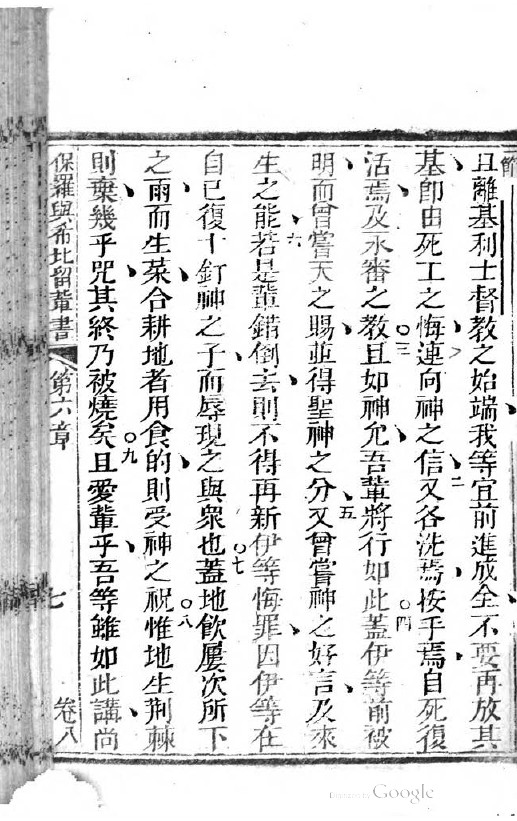 節
且離基利士督教之始端我等宜前進成全不要再放其
基卽由死工之悔連向神之信又各洗焉按乎焉自死復
二
活焉及永審之教且如神允吾輩將行如此蓋伊等前被
三
四
明而曾嘗天之賜並得聖神之分又曾嘗神之好言及來
五
生之能若是輩錯倒去則不得再新伊等悔罪因伊等在
六
自己復十釘神之子而辱現之與眾也蓋地飲屢次所下
七
之雨而生菜合耕地者用食的則受神之祝惟地生荊棘
八
則棄幾乎咒其終乃被燒矣且愛輩乎吾等雖如此講尚
九
保羅與希比留輩書 第六章 七 卷八
Google